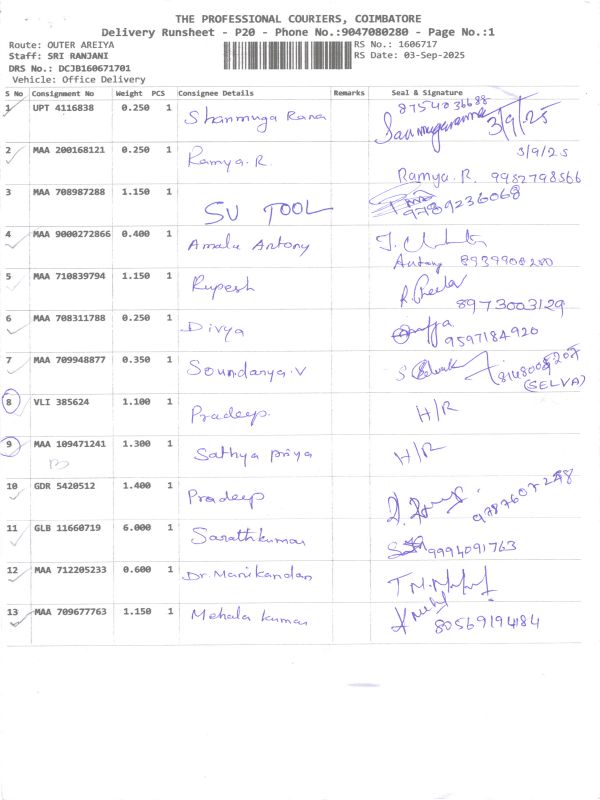 THE PROFESSIONAL COURIERS, COIMBATORE
Delivery Runsheet - P20 - Phone No.:9047080280 - Page No.:1
Route: OUTER AREIYA RS No.: 1606717
Staff: SRI RANJANI RS Date: 03-Sep-2025
DRS No.: DCJB160671701
Vehicle: Office Delivery
S No Consignment No Weight PCS Consignee Details Remarks Seal & Signature
1 UPT 4116838 0.250 1 Shanmuga Rana 8754036688
3/9/25
2 MAA 200168121 0.250 1 Ramya.R. 3/9/25
Ramya.R. 9952798566
3 MAA 708987288 1.150 1 SU TOOL 9789236068
4 MAA 9000272866 0.400 1 Amala Antony
Antony 8939908280
5 MAA 710839794 1.150 1 Rupesh
8973003129
6 MAA 708311788 0.250 1 Divya
9597184920
7 MAA 709948877 0.350 1 Soundanya.V
(SELVA)
8 VLI 385624 1.100 1 Pradeep. H/R
9 MAA 109471241 1.300 1 Sathya priya H/R
10 GDR 5420512 1.400 1 Pradeep
11 GLB 11660719 6.000 1 Sarathkumar 9994091763
12 MAA 712205233 0.600 1 Dr.Manikandan
13 MAA 709677763 1.150 1 Mehala kumar
8056919484